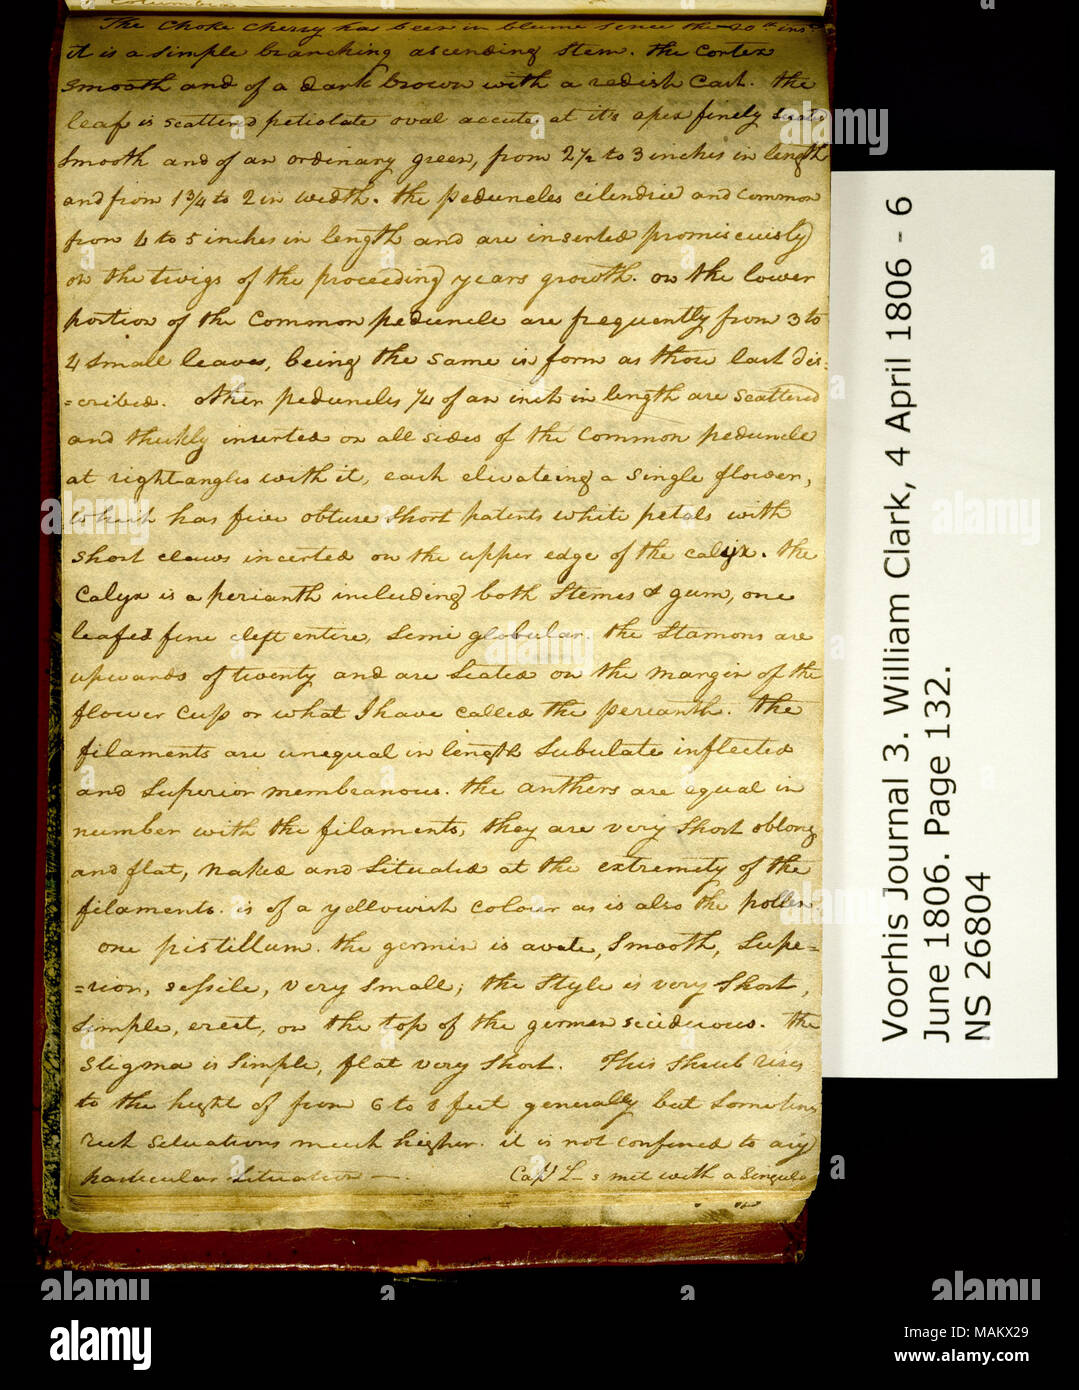 The Choke Cherry has been in blume since the 20th inst.
it is a simple branching ascending Stem. the Cortex
smooth and of a dark brown with a redish Cast. the
leaf is scattered petiolate oval accute at it's apex finely
smooth and of an ordinary green, from 2½ to 3 inches in length
and from 1¾ to 2 in width. the peduncles cilendric and common
from 4 to 5 inches in length and are inserted promiscuisly
on the twigs of the proceeding years growth. on the lower
portion of the Common peduncle are frequently from 3 to
4 small leaves, being the same in form as those last dis-
=cribed. other peduncles ¼ of an inch in length are scattered
and thickly inserted on all sides of the Common peduncle
at right-angles with it, each elivateing a single flower,
which has five obtuse Short patents white petals with
short claws incerted on the upper edge of the calyx. the
Calyx is a perianth including both Stemes & gum, one
leafed five cleft entire, Semi globular. the Stamons are
upwards of twenty and are Seated on the margin of the
flower Cup or what I have called the perianth. The
filaments are unequal in length Subulate inflected
and Superior membranous. the anthers are equal in
number with the filaments, they are very Short oblong
and flat, naked and Situated at the extremity of the
filaments. is of a yellowish colour as is also the pollen
one pistillum. the germin is ovate, Smooth, Supe=
=rior, sessile, very Small; the Style is very Short,
Simple, erect, on the top of the germen. the
Stigma is Simple, flat very Short. This Shrub rises
to the hight of from 6 to 8 feet generally but Sometimes
rich Situations much higher. it is not confined to any
particular Situation —. Capt L_s met with a Singular
Voorhis Journal 3. William Clark, 4 April 1806 - 6
June 1806. Page 132.
NS 26804
alamy
Image ID: MAKX29
www.alamy.com